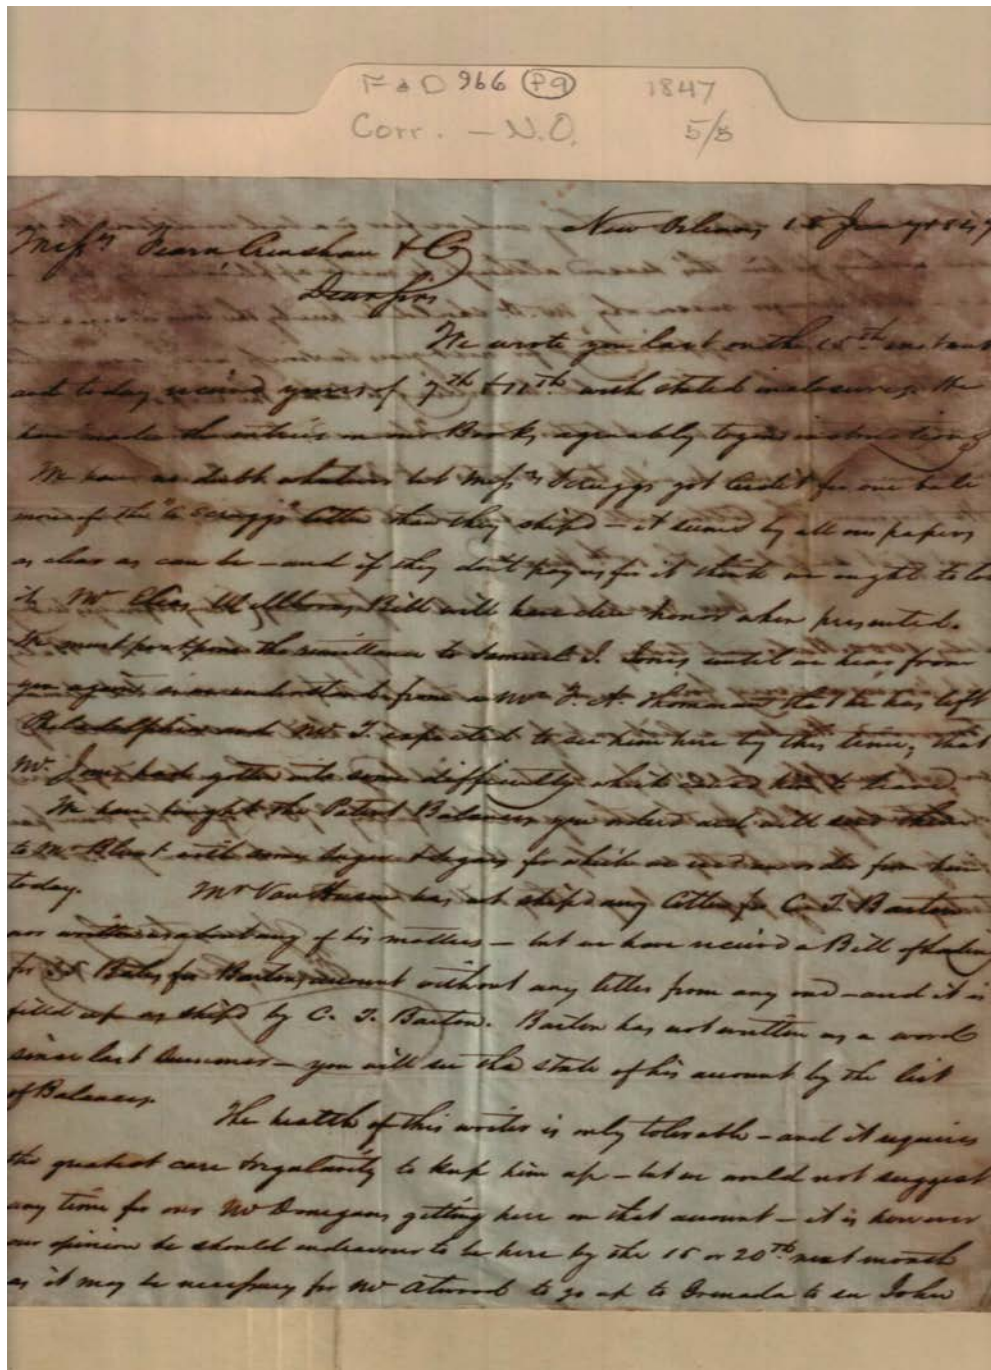 F & D 966 P9 1847
Corr. - N.O. 5/3
New Orleans 18 Jany 1847
Messrs Fearn Crenshaw & Co
Dear Sirs
We wrote you last on the 15th instant
and today received yours of 9th & 11th with stated inclosures. We
have made the entries in our Books agreeably to your instructions
We have no doubt whatever but Messrs Scruggs got Credit for one bale
more of the Scruggs Cotton than they shipd – it seemed by all our papers
as clear as can be – and if they dont pay us for it think we ought to lose
it. Mr Elias Wellborns Bill will have due honor when presented.
We must postpone the remittance to Samuel J. Jones until we hear from
you again, as we understand from a Mr F. A. that he has left
Philadelphia and Mr T. expected to see him here by this time; that
Mr Jones had gotten into some difficulty which caused him to leave.
We have bought the Patent Balances you orderd and will send them
to Mr with some Sugar & for which we recd an order from him
today. Mr Van has not shipd any Cotton for C. T. Barton
nor written us about any of his matters – but we have received a Bill of Ladin
for Bales for Bartons account without any letter from any one – and it is
filled up as shipd by C. T. Barton. Barton has not written us a word
since last Summer – you will see the state of his account by the list
of Balances.
The health of this writer is only tolerable – and it requires
the greatest care & regularity to keep him up – but we would not suggest
any time for our Mr Donegans getting here on that account – it is however
our opinion he should endeavour to be here by the 15 or 20th next month
as it may be necessary for Mr Atwood to go up to Grenada to see John